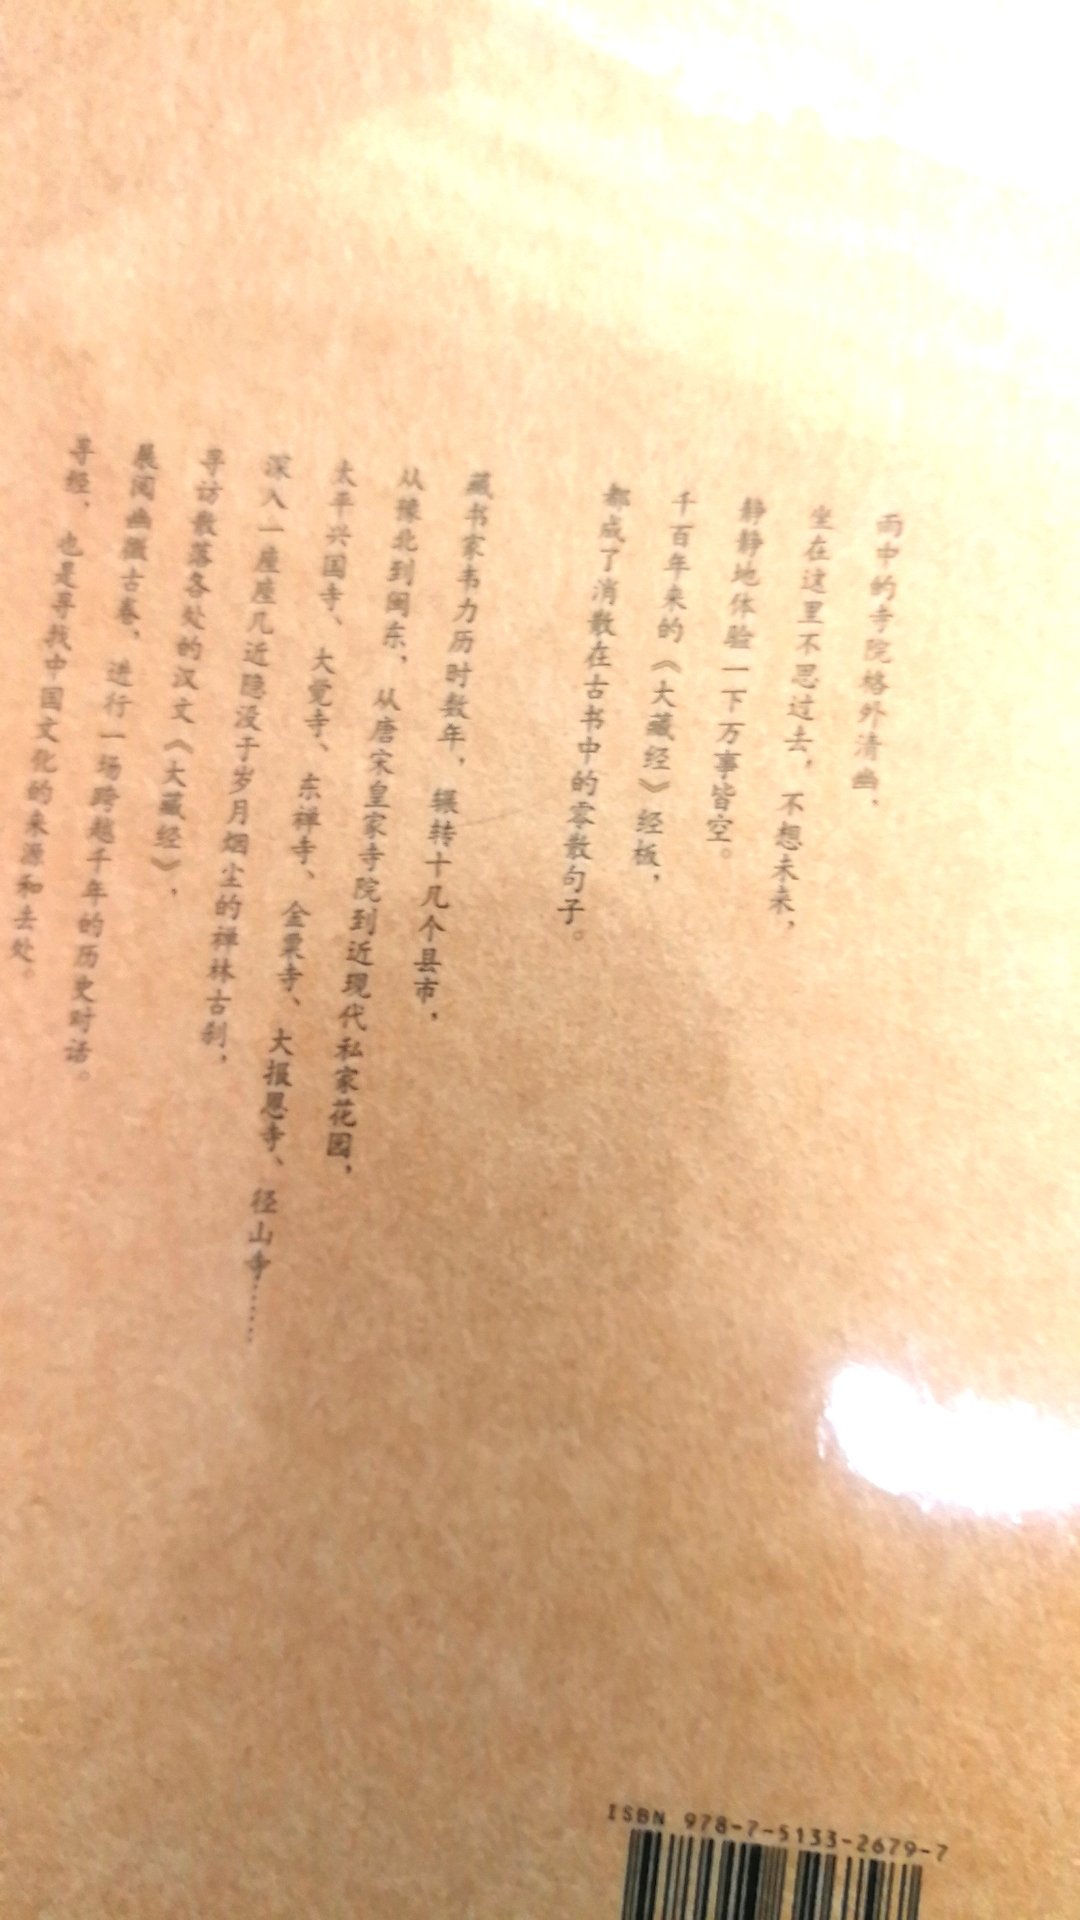 雨中的寺院格外清幽，
坐在这里不思过去，不想未来，
静静地体验一下万事皆空。
千百年来的《大藏经》经板，
都成了消散在古书中的零散句子。
藏书家韦力历时数年，辗转十几个县市，
从豫北到闽东，从唐宋皇家寺院到近现代私家花园，
太平兴国寺、大觉寺、东禅寺、金粟寺、大报恩寺、径山寺……
深入一座座几近隐没于岁月烟尘的禅林古刹，
寻访散落各处的汉文《大藏经》，
展阅幽微古卷，进行一场跨越千年的历史对话。
寻经，也是寻找中国文化的来源和去处。
ISBN 978-7-5133-2679-7